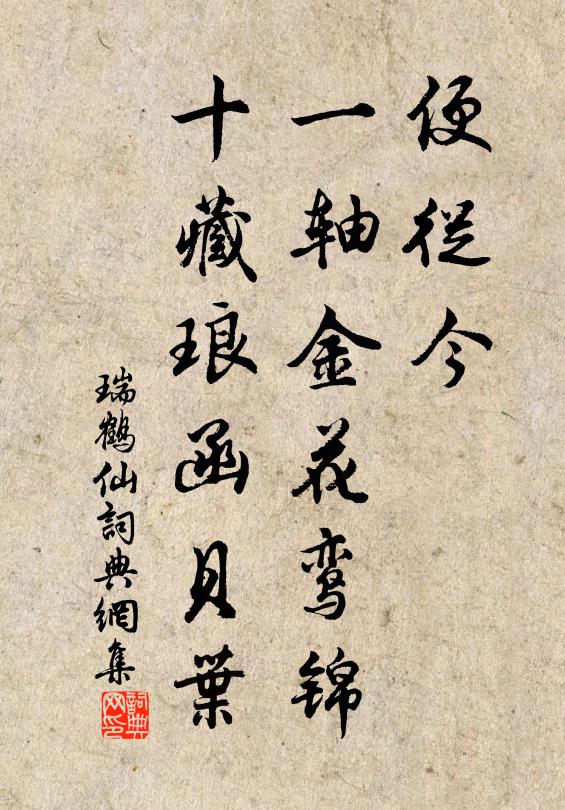 便從今
一轴金花鸾锦
十藏琅函貝葉
瑞鶴仙詞典網集
詞典网印